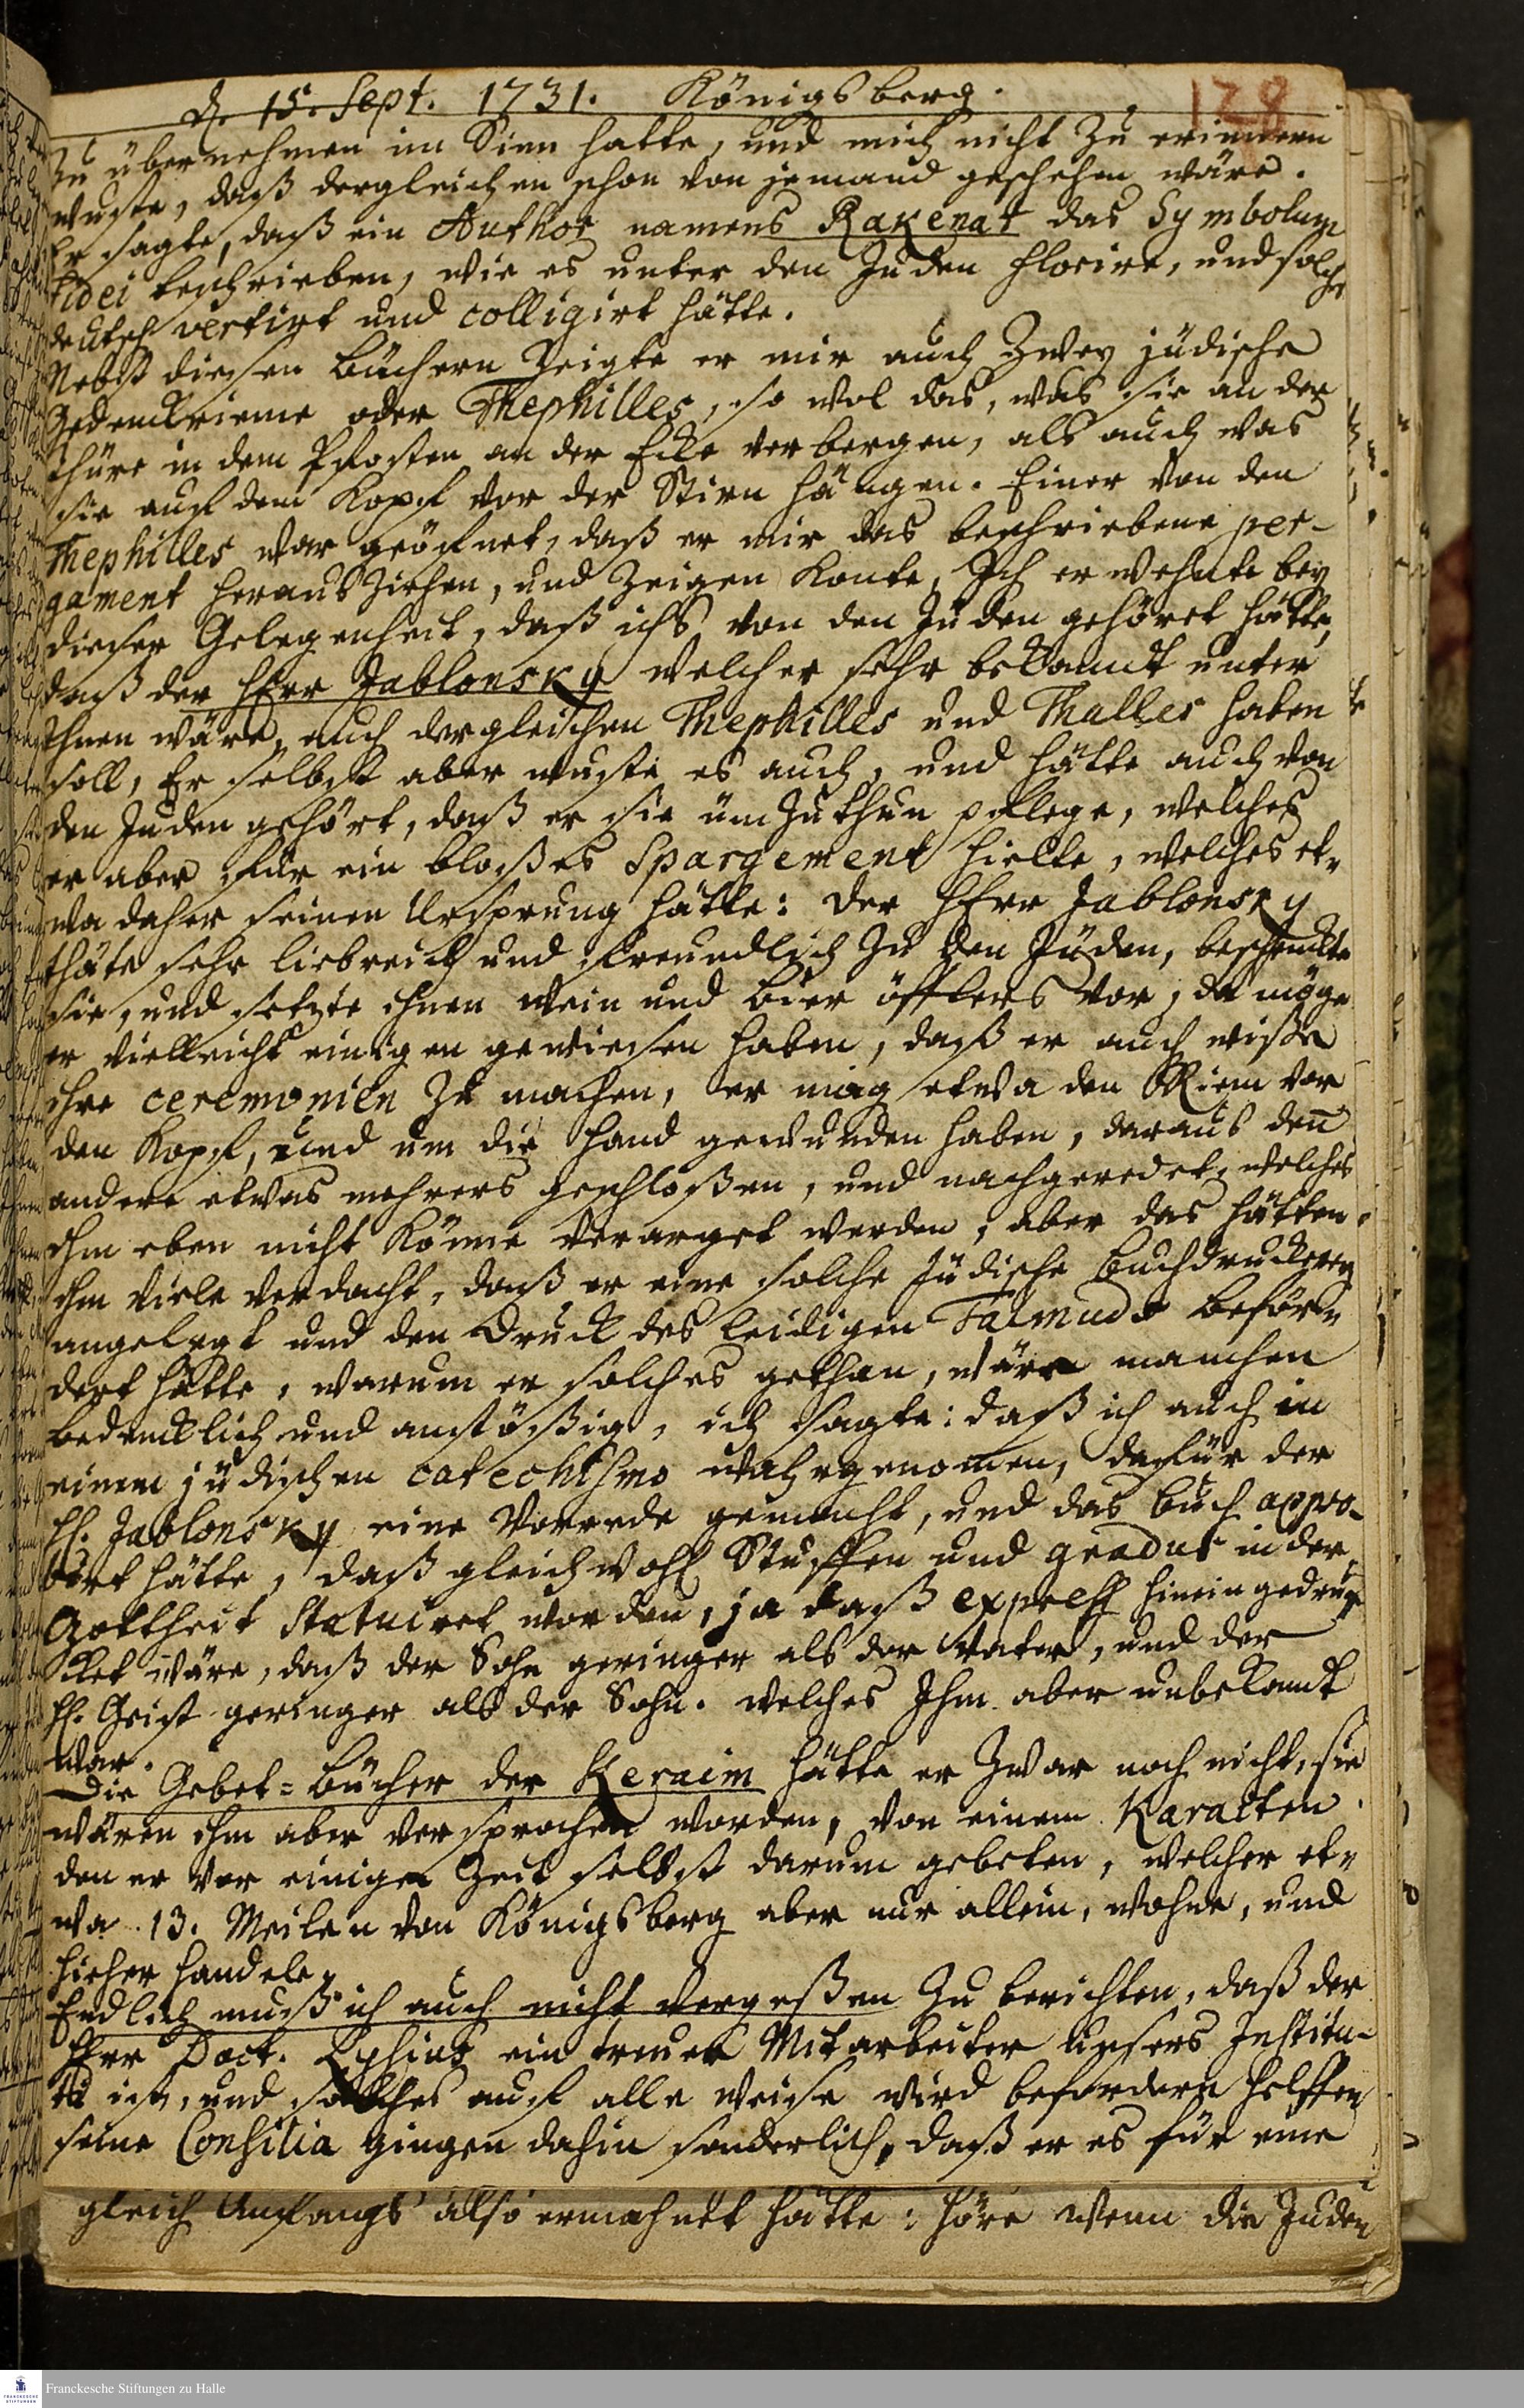 d. 15. Sept. 1731. Königsberg.
128
Zu übernehmen im Sinn hatte, und mich nicht Zu erinnern
wuste, daß dergleichen schon von jemand geschehen wäre.
Er sagte, daß ein Author namens Rakenat das Symbolum
fidei beschrieben, wie es unter den Juden florire, und solche
deutsch vertirt und colligirt hätte.
Nebst diesen Büchern Zeigte er mir auch Zwey jüdische
Gedenckrieme oder Thephilles, so wol das, was sie an der
thüre in dem Pfosten an der Ecke verbergen, als auch was
sie auf dem Kopf vor der Stirn hängen. Einer von den
Thephilles war geöfnet, daß er mir das beschriebene per-
gament heraus Ziehen, und Zeigen Konte, Ich erwehnte bey
dieser Gelegenheit, daß ichs von den Juden gehöret hätte,
daß der Herr Jablonsky welcher sehr bekandt unter
Ihnen wäre, auch dergleichen Thephilles und Thalles haben
soll, Er selbst aber wuste es auch, und hätte auch von
den Juden gehört, daß er sie üm Zuthun pflege, welches
er aber für ein bloßes Spargement hielte, welches et-
wa daher seinen Ursprung hätte: der Herr Jablonsky
thäte sehr liebreich und freundlich Zu den Jüden, beschenckte
sie, und setzte ihnen Wein und Bier öffters vor, da möge
er vielleicht einigen gewiesen haben, daß er auch wiße
ihre ceremonien Zu machen, er mag etwa den Riem vor
den Kopf, und um die Hand gewunden haben, daraus den
andere etwas mehrers geschloßen, und nachgeredet, welches
ihm eben nicht Könne verarget werden, aber das hätten
ihm viele verdacht, daß er eine solche Jüdische Buchdruckerey
angelegt und den Druck des leidigen Talmuds beför-
dert hätte, warum er solches gethan, wäre manchen
bedencklich und anstößig, ich sagte: daß ich auch in
einem jüdischen catechismo wahrgenomen, dafür der
H. Jablonsky eine Vorrede gemacht, und das Buch appro-
birt hätte, daß gleichwohl Stuffen und gradus in der
Gottheit statuiret worden, ja daß express hinein gedru-
cket wäre, daß der Sohn geringer als der Vater, und der
H. Geist geringer als der Sohn. welches Ihm aber unbekandt
war.
Die Gebet=Bücher der Keraim hätte er Zwar noch nicht, sie
wären ihm aber versprochen worden, von einem Karaiten
den er vor einiger Zeit selbst darum gebeten, welcher et-
wa 13. Meilen von Königsberg aber nur allein, wohne, und
hieher handele.
Endlich muß ich auch nicht vergeßen Zu berichten, daß der
Herr Doct. Lysius ein treuer Mitarbeiter unsers Institu-
ti ist, und solches auf alle Weise wird befordern helffen
seine Consilia gingen dahin sonderlich, daß er es für eine
gleich Anfangs also ermahnet hätte: höre wenn die Juden
Franckesche Stiftungen zu Halle